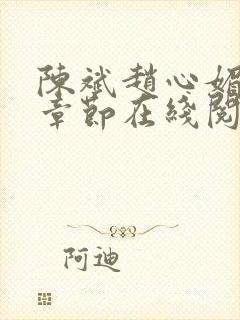 陳斌趙心媚
章節在綫閱
阿迪